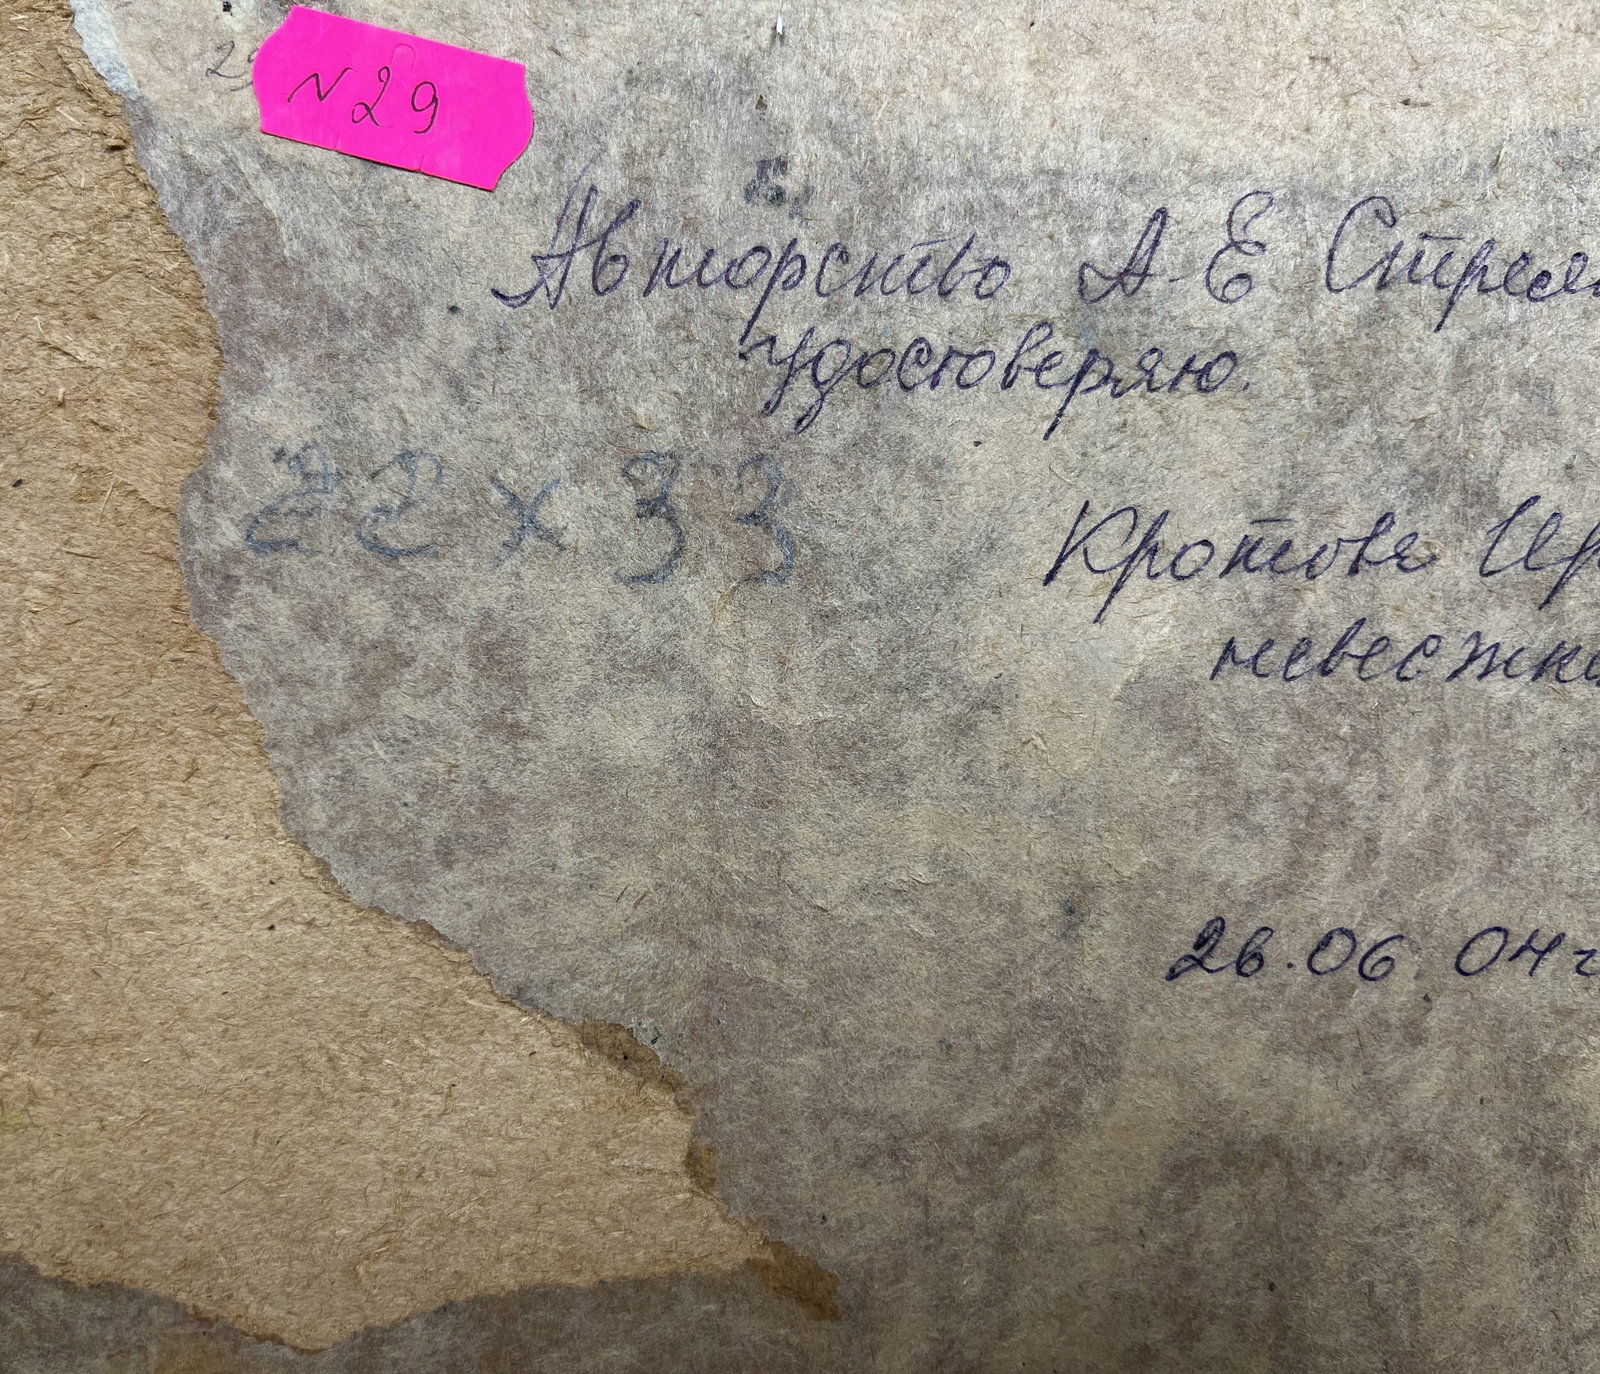 N 29
Авторство А. Е Стреле
удостоверяю.
22 х 33
Кротова Ир
невестка
26.06.04 г